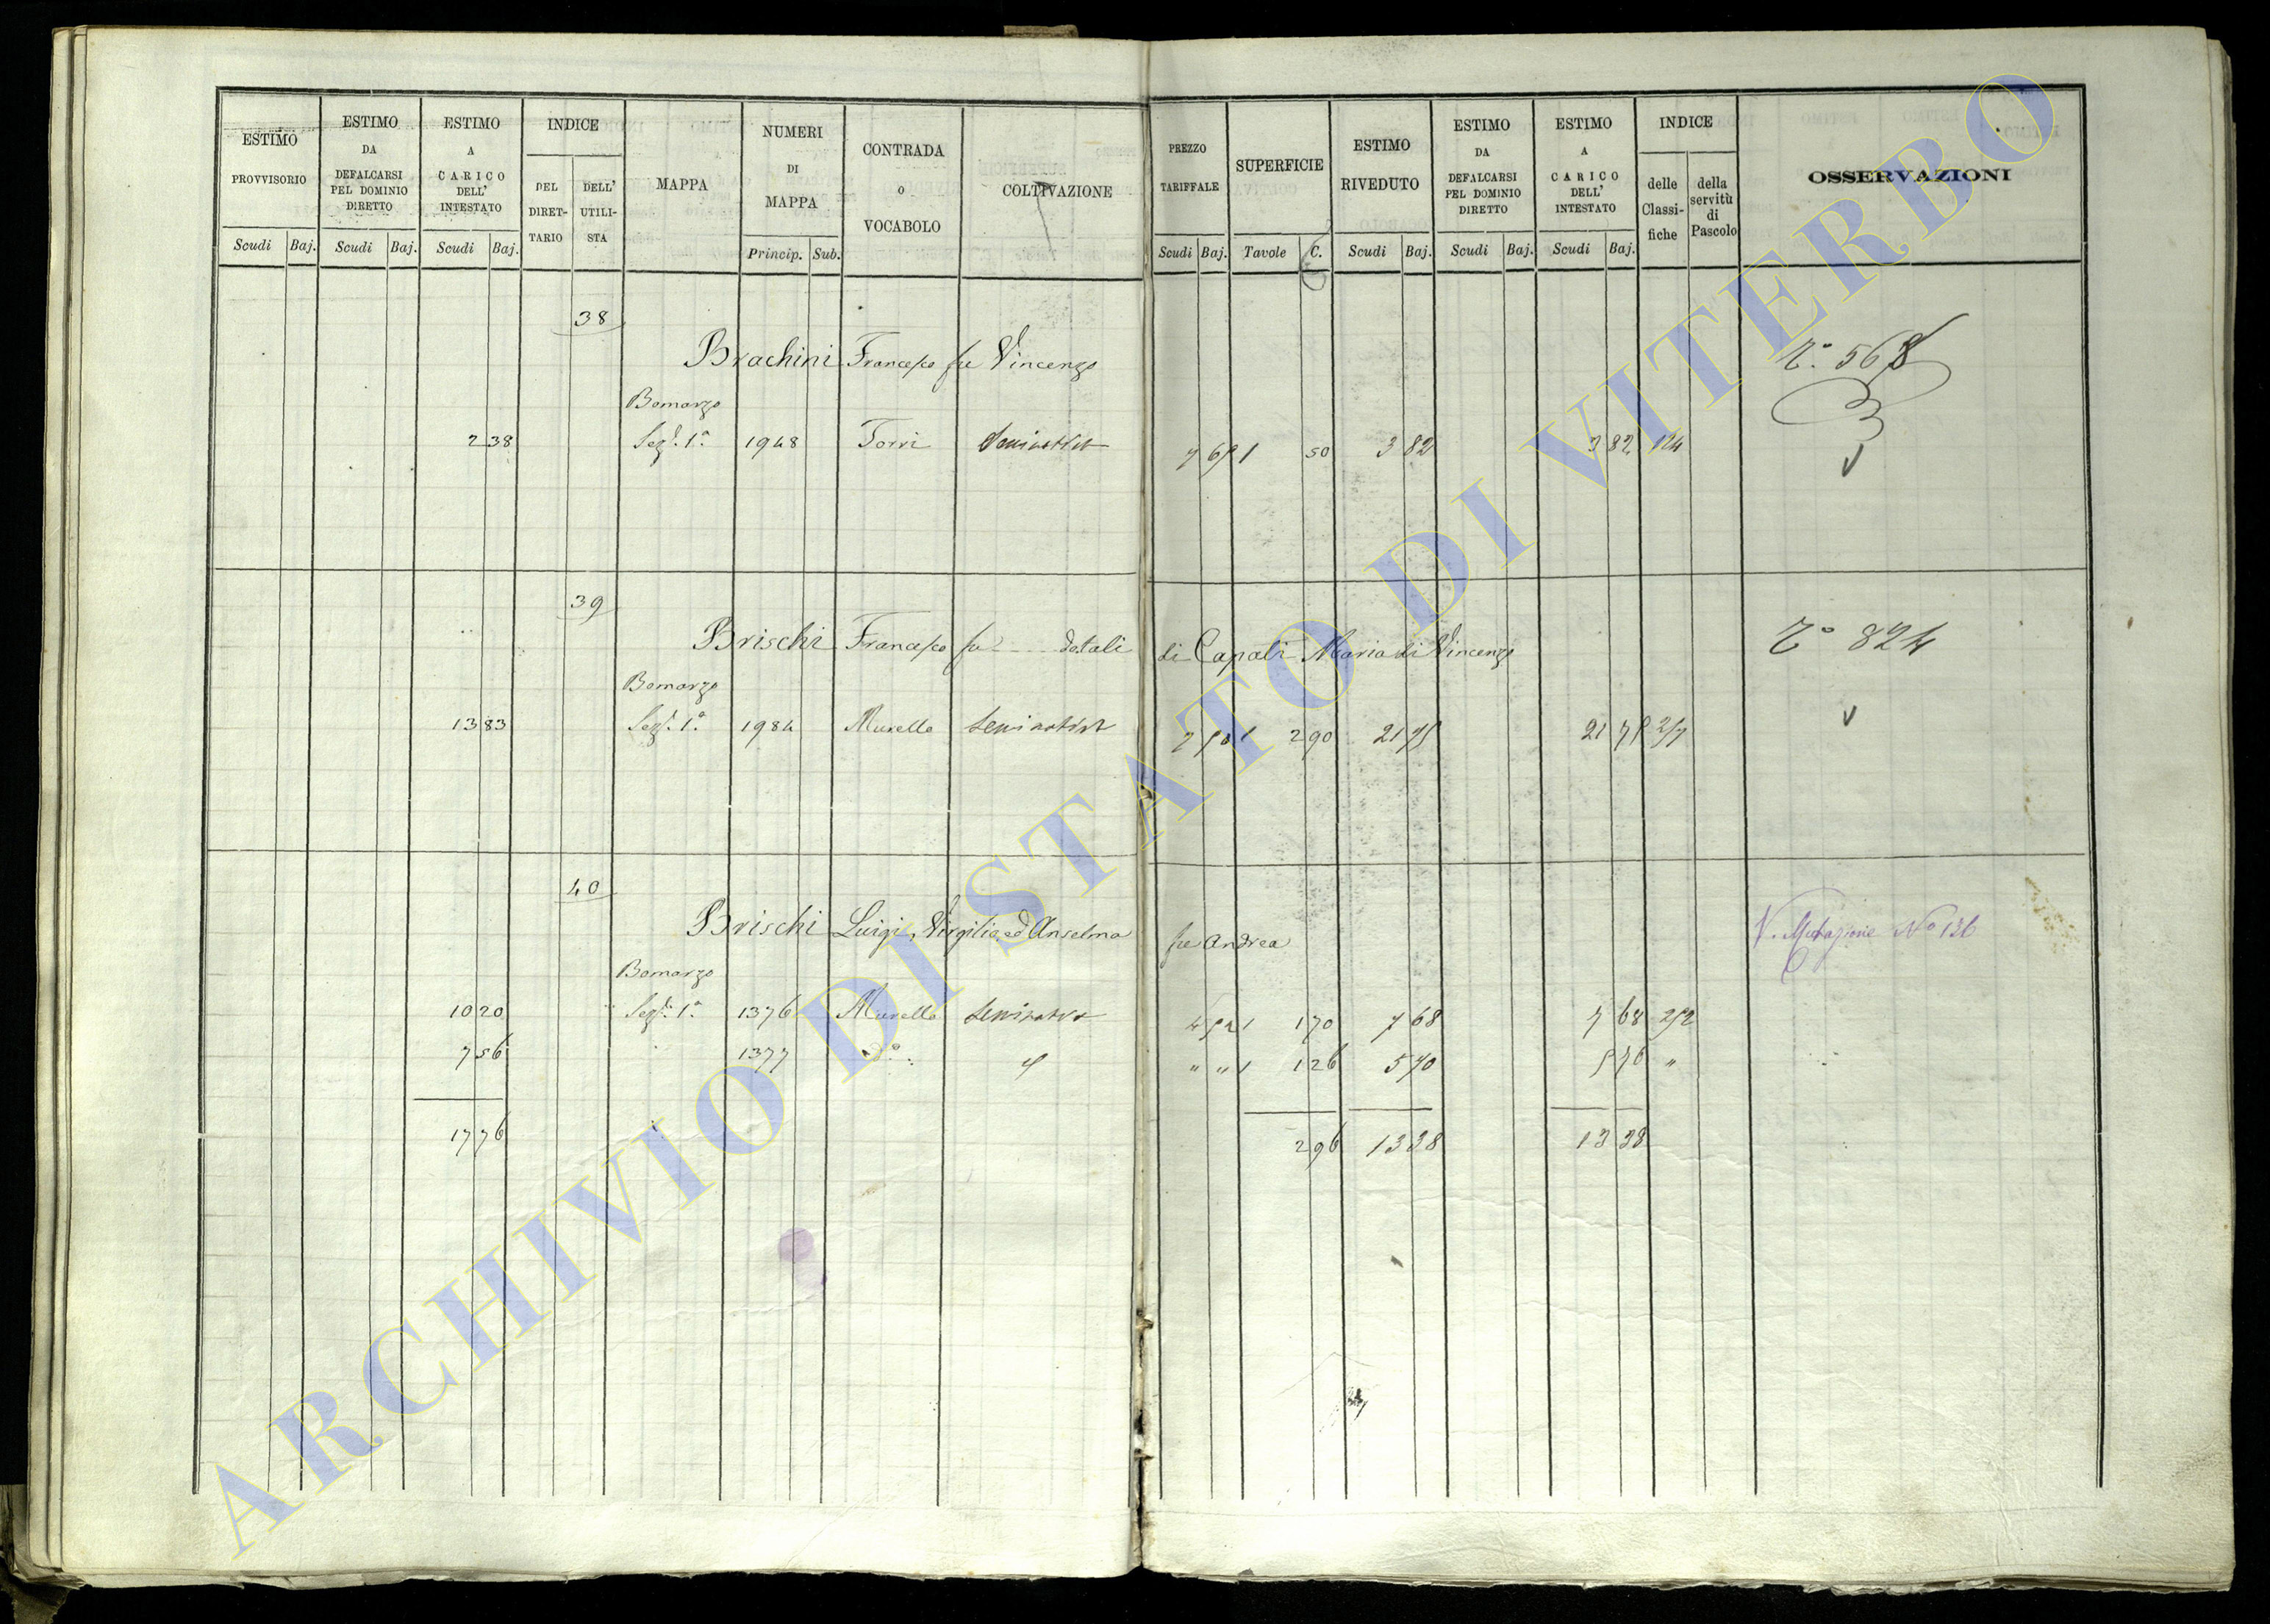 ESTIMO PROVVISORIO Scudi Baj.
ESTIMO DA DEFALCARSI PEL DOMINIO DIRETTO Scudi Baj.
ESTIMO A CARICO DELL' INTESTATO Scudi Baj.
INDICE DEL DIRET-TARIO DELL' UTILI-STA
MAPPA
NUMERI DI MAPPA Princip. Sub.
CONTRADA O VOCABOLO
COLTIVAZIONE
PREZZO TARIFFALE Scudi Baj.
SUPERFICIE Tavole C.
ESTIMO RIVEDUTO Scudi Baj.
ESTIMO DA DEFALCARSI PEL DOMINIO DIRETTO Scudi Baj.
ESTIMO A CARICO DELL' INTESTATO Scudi Baj.
INDICE delle Classi-fiche della servitù di Pascolo
OSSERVAZIONI
38
Brachini Francesco fu Vincenzo
Bomarzo
2 38 Sez. 1ª 1948 Torri Seminativo 50 3 82 3 82 124
568
39
Brischi Francesco fu dotali di Capali Maria di Vincenzo
824
Bomarzo
13 83 Sez. 1ª 1984 Murello Seminativo 2 90 21
40
Brischi Luigi, Virgilio, ed Anselmo fu Andrea
V. Mutazione No 136
Bomarzo
10 20 Sez. 1ª 1376 Murello Seminativo 1 70 7 68 7 68
7 56 1377 dº " " 1 26 5 70 5 70 "
17 76 2 96 13 38 13 38
ARCHIVIO DI STATO DI VITERBO